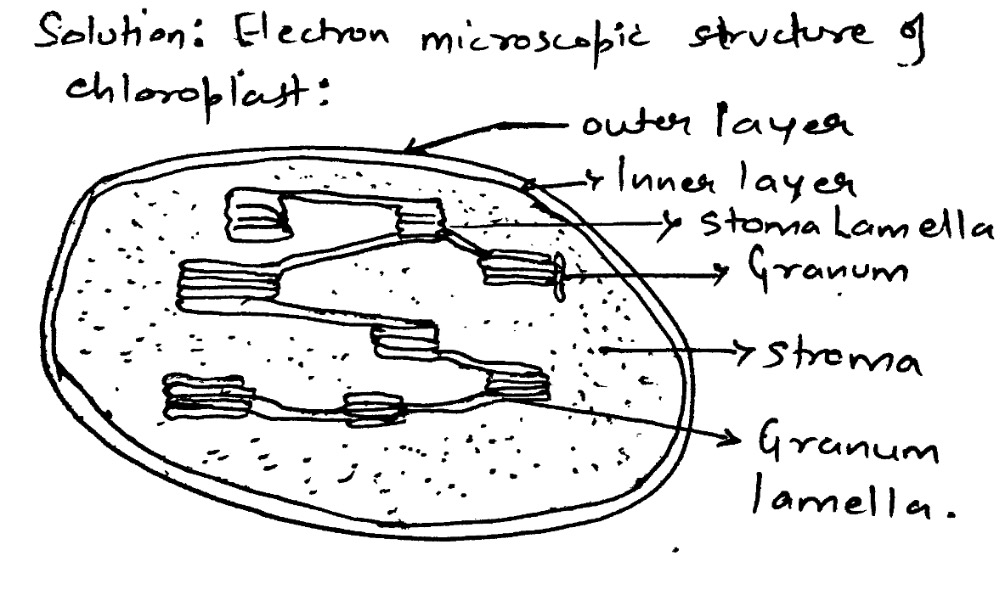 Solution: Electron microscopic structure of
chloroplast:
outer layer
Inner layer
Stoma Lamella
Granum
Stroma
Granum
lamella.